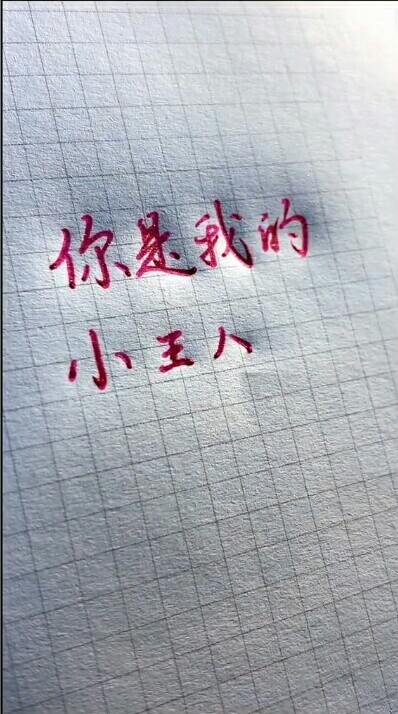 你是我的
小王人